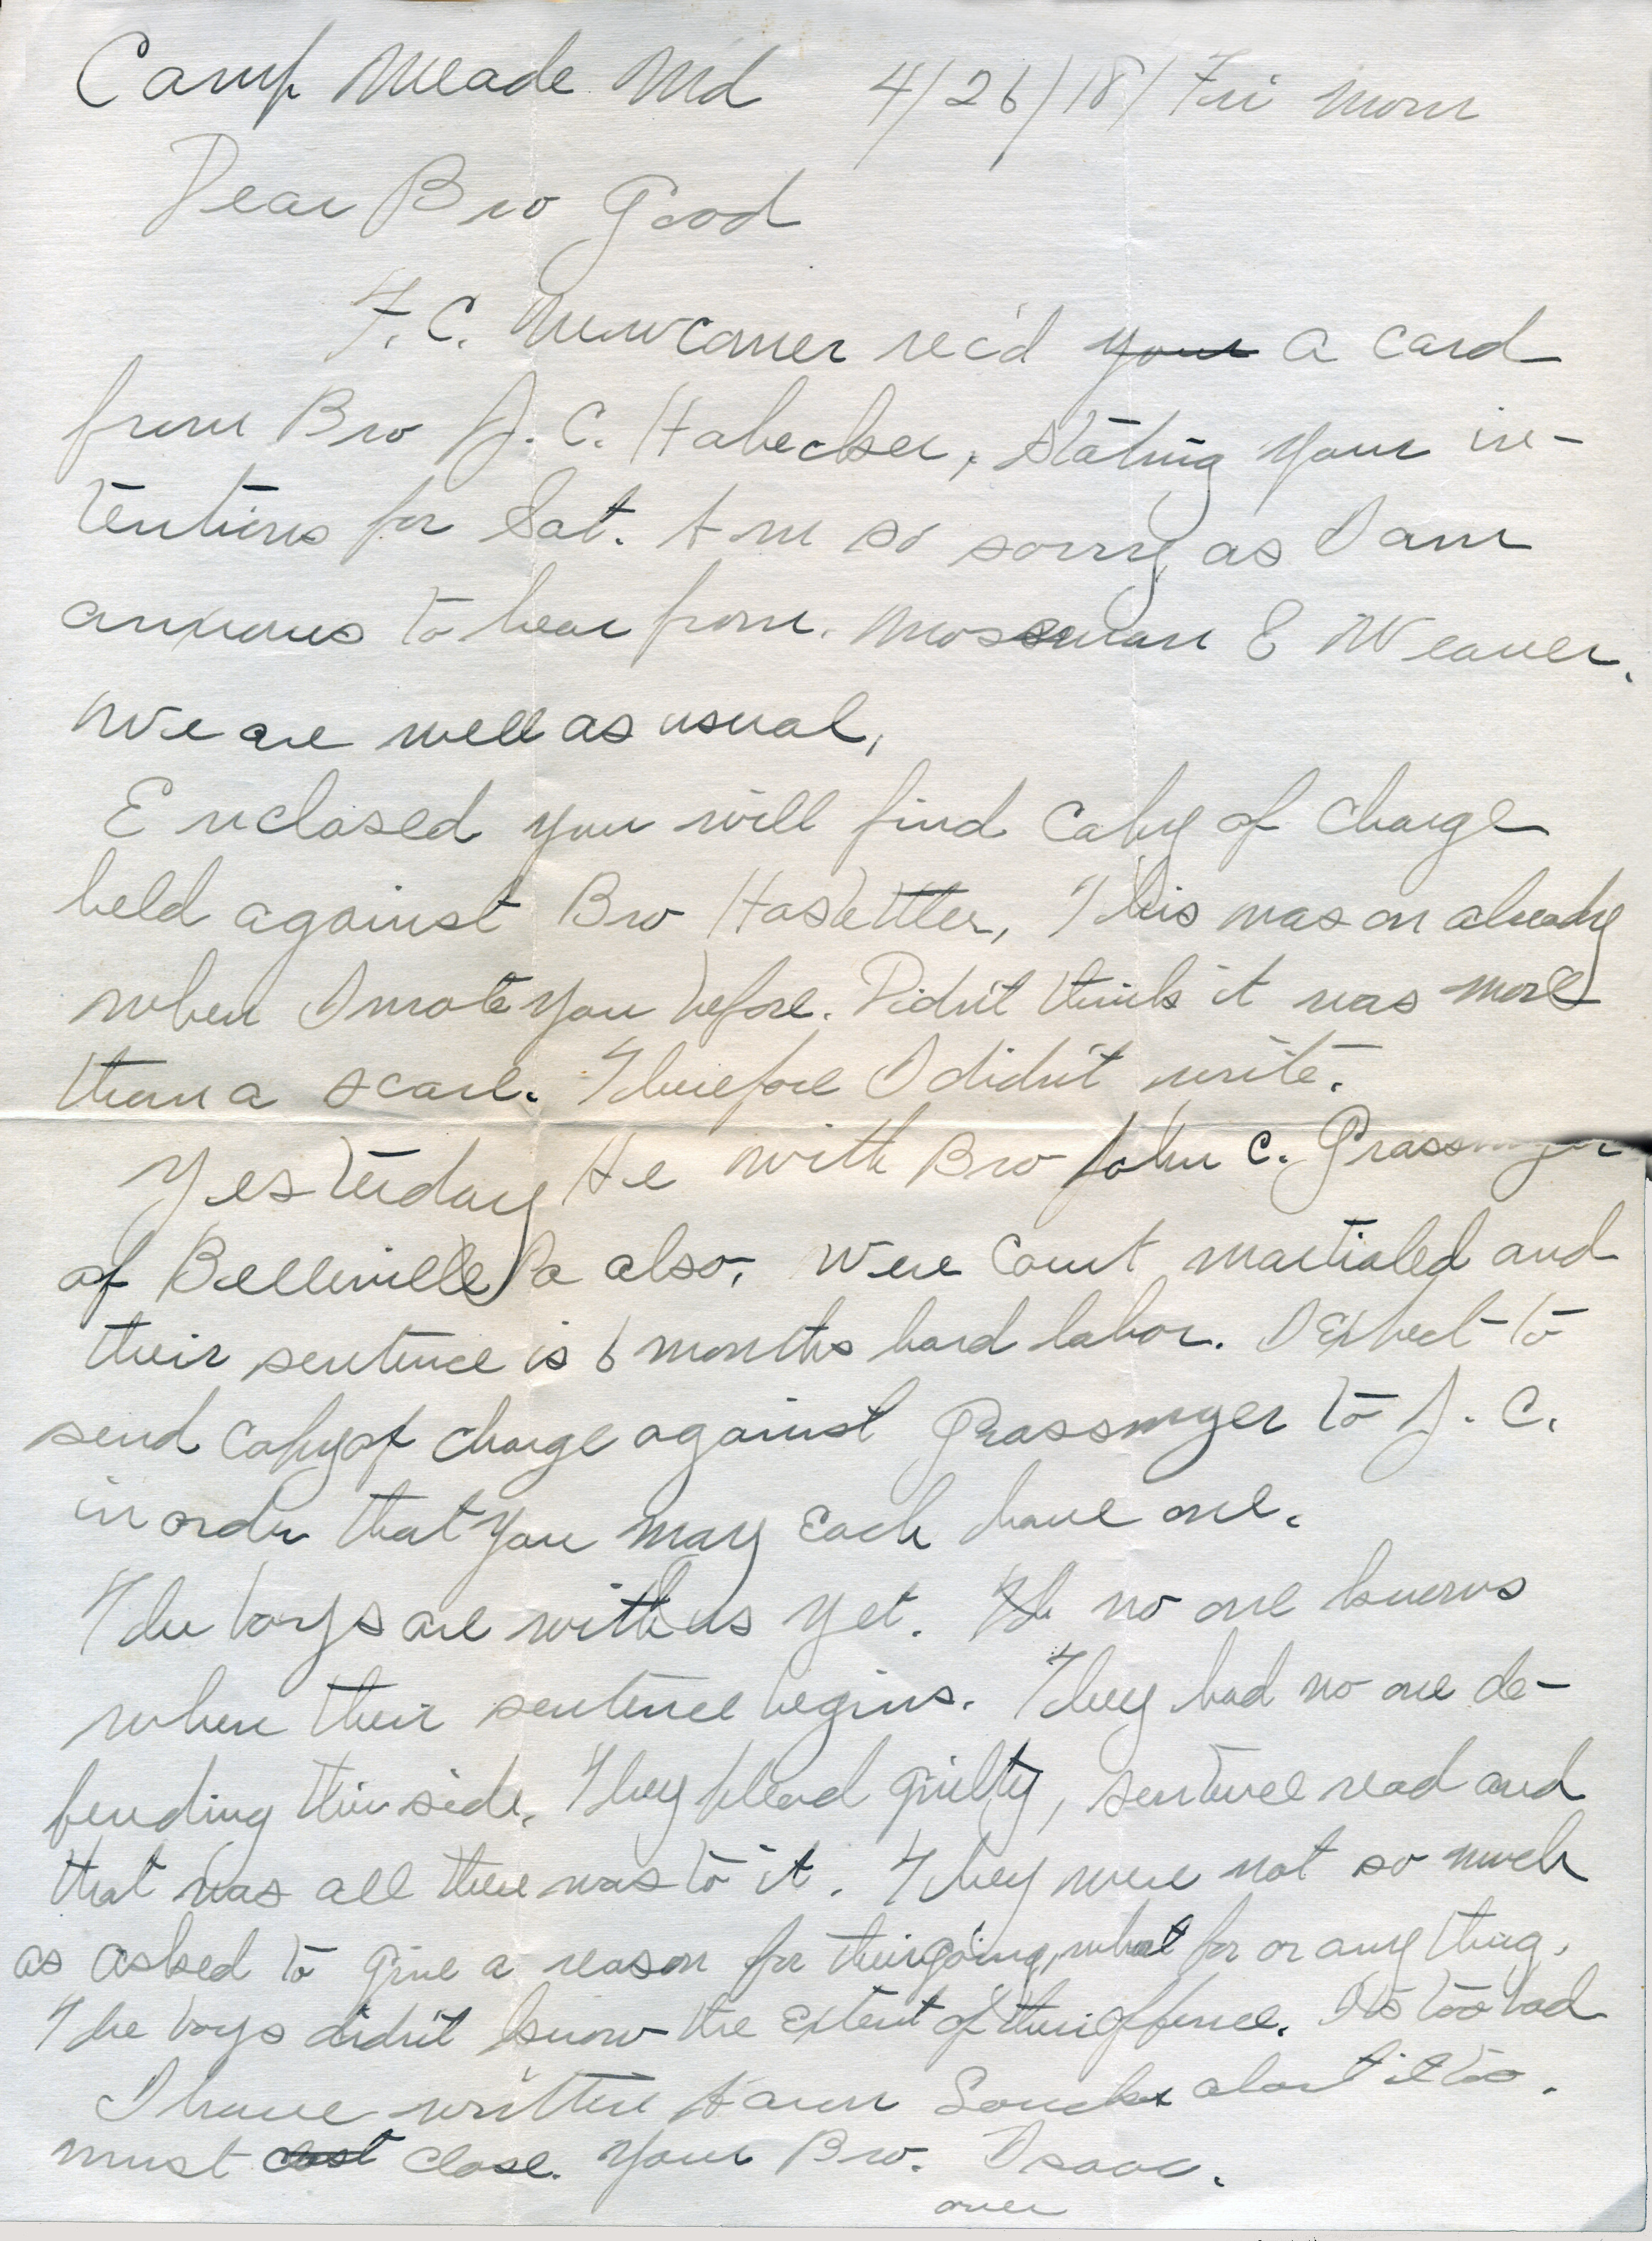 Camp Meade Md 4/26/18/ Fri morn
Dear Bro Good
F. C. Newcomer rec'd your a card
from Bro D. C. Habecker, stating your in-
tentions for Sat. Am so sorry as I am
anxious to hear from. Mosseman & Weaver.
We are well as usual,
Enclosed you will find Copy of Charge
held against Bro Hostettler, This was on already
when I wrote you before. Didn't think it was more
than a scare. Therefore I didn't write.
Yesterday He with Bro John C. Grassmyer
of Belleville Pa also, were Court martialed and
their sentence is 6 months hard labor. I Expect to
send Copy of charge against Grassmyer to D. C.
in order that you may Each have one.
The boys are with us yet. no one knows
when their sentence begins. They had no one de-
fending their side. They plead guilty, sentence read and
that was all there was to it. They were not so much
as asked to give a reason for their going, what for or any thing.
The boys didn't know the Extent of their offence. Its too bad
I have written Aaron about it too.
must close. Your Bro. Isaac.
over